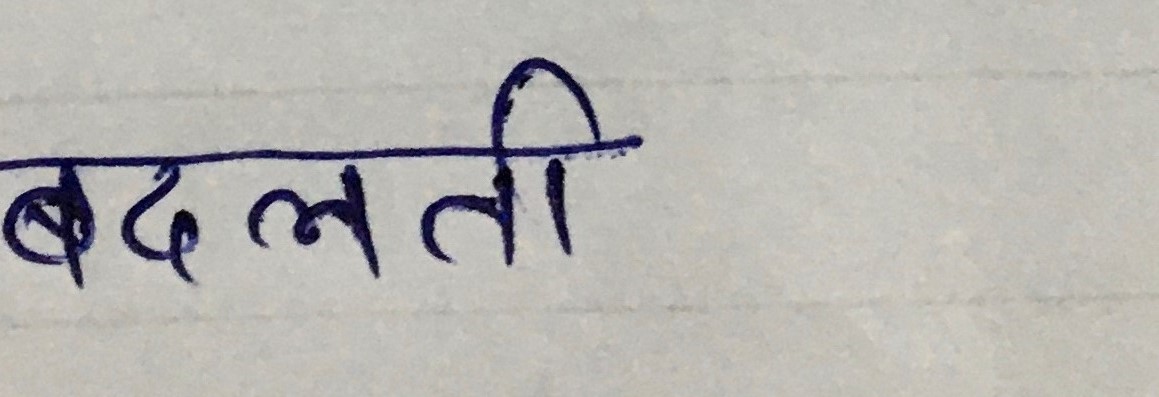 बदलती